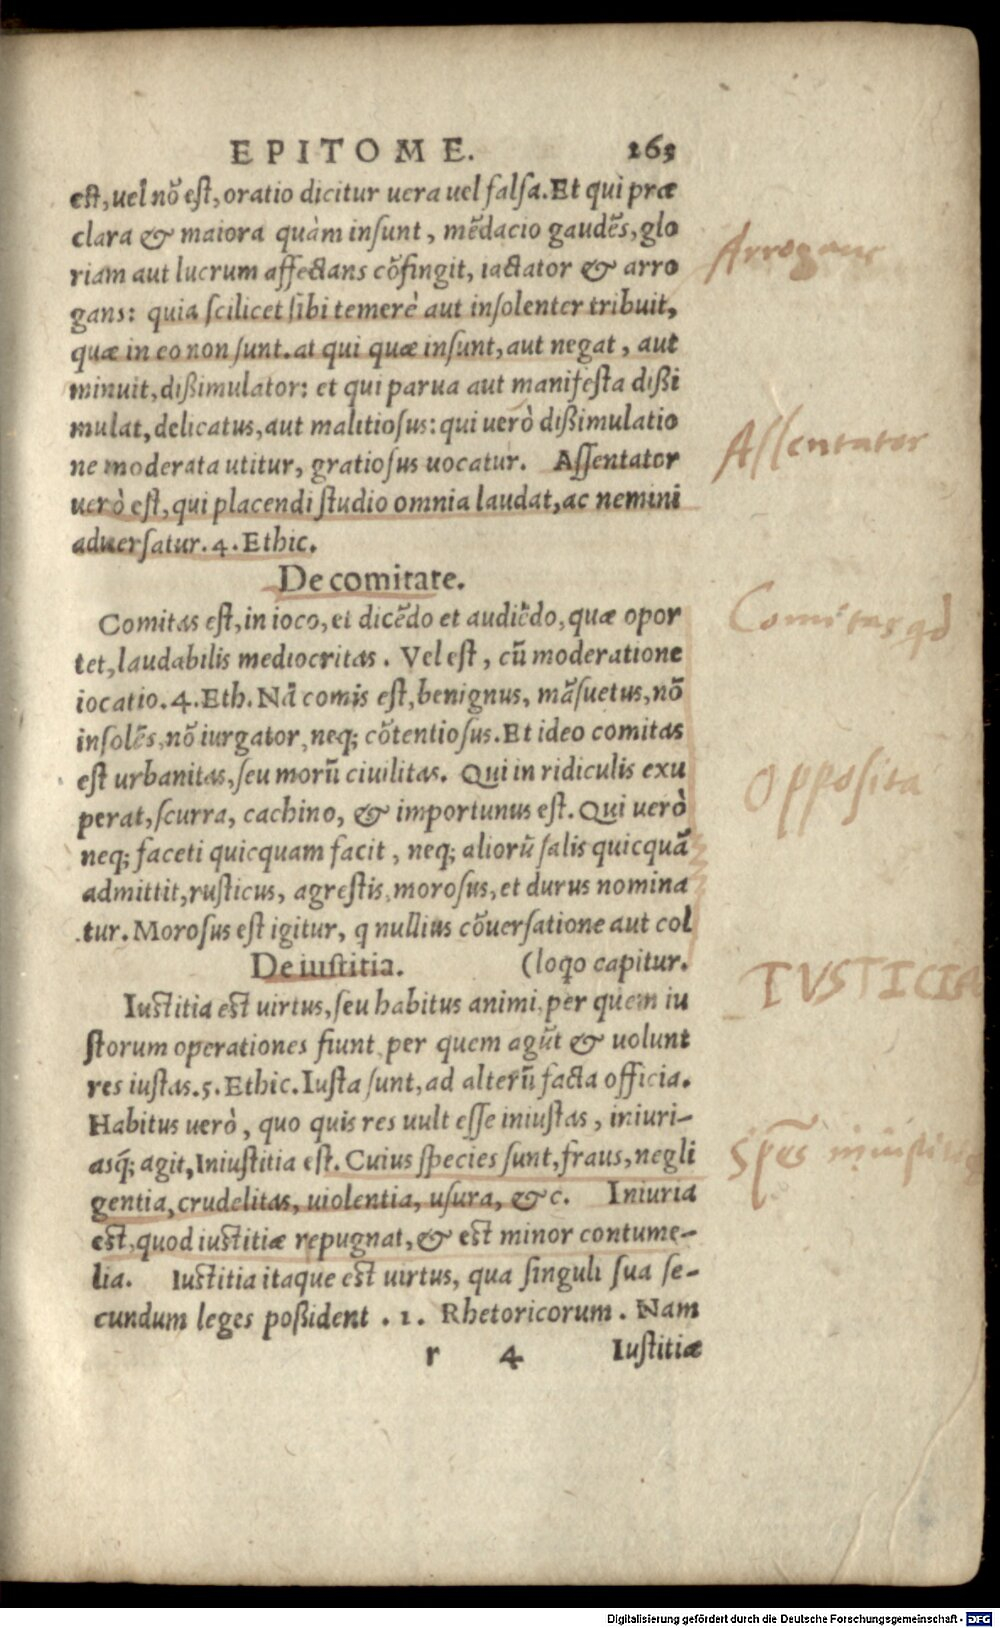 EPITOME. 263
est, uel nõ est, oratio dicitur uera uel falsa. Et qui præ
clara & maiora quàm insunt, mẽdacio gaudẽs, glo
riam aut lucrum affectans cõfingit, iactator & arro
gans: quia scilicet sibi temerè aut insolenter tribuit,
quæ in eo non sunt. at qui quæ insunt, aut negat, aut
minuit, dißimulator: et qui parua aut manifesta dißi
mulat, delicatus, aut malitiosus: qui uerò dißimulatio
ne moderata utitur, gratiosus uocatur. Assentator
uerò est, qui placendi studio omnia laudat, ac nemini
aduersatur. 4. Ethic.
De comitate.
Comitas est, in ioco, et dicẽdo et audiẽdo, quæ opor
tet, laudabilis mediocritas. Vel est, cũ moderatione
iocatio. 4. Eth. Nã comis est, benignus, mãsuetus, nõ
insolẽs, nõ iurgator, neq; cõtentiosus. Et ideo comitas
est urbanitas, seu morũ ciuilitas. Qui in ridiculis exu
perat, scurra, cachino, & importunus est. Qui uerò
neq; faceti quicquam facit, neq; aliorũ salis quicquã
admittit, rusticus, agrestis, morosus, et durus nomina
tur. Morosus est igitur, q nullius cõuersatione aut col
De iustitia. (loqo capitur.
Iustitia est uirtus, seu habitus animi, per quem iu
storum operationes fiunt, per quem agũt & uolunt
res iustas. 5. Ethic. Iusta sunt, ad alterũ facta officia.
Habitus uerò, quo quis res uult esse iniustas, iniuri-
asq́; agit, Iniustitia est. Cuius species sunt, fraus, negli
gentia, crudelitas, uiolentia, usura, &c. Iniuria
est, quod iustitiæ repugnat, & est minor contume-
lia. Iustitia itaque est uirtus, qua singuli sua se-
cundum leges poßident. 1. Rhetoricorum. Nam
r 4 Iustitiæ
Arrogans
Assentator
Comitas qd
Opposita
Digitalisierung gefördert durch die Deutsche Forschungsgemeinschaft - DFG